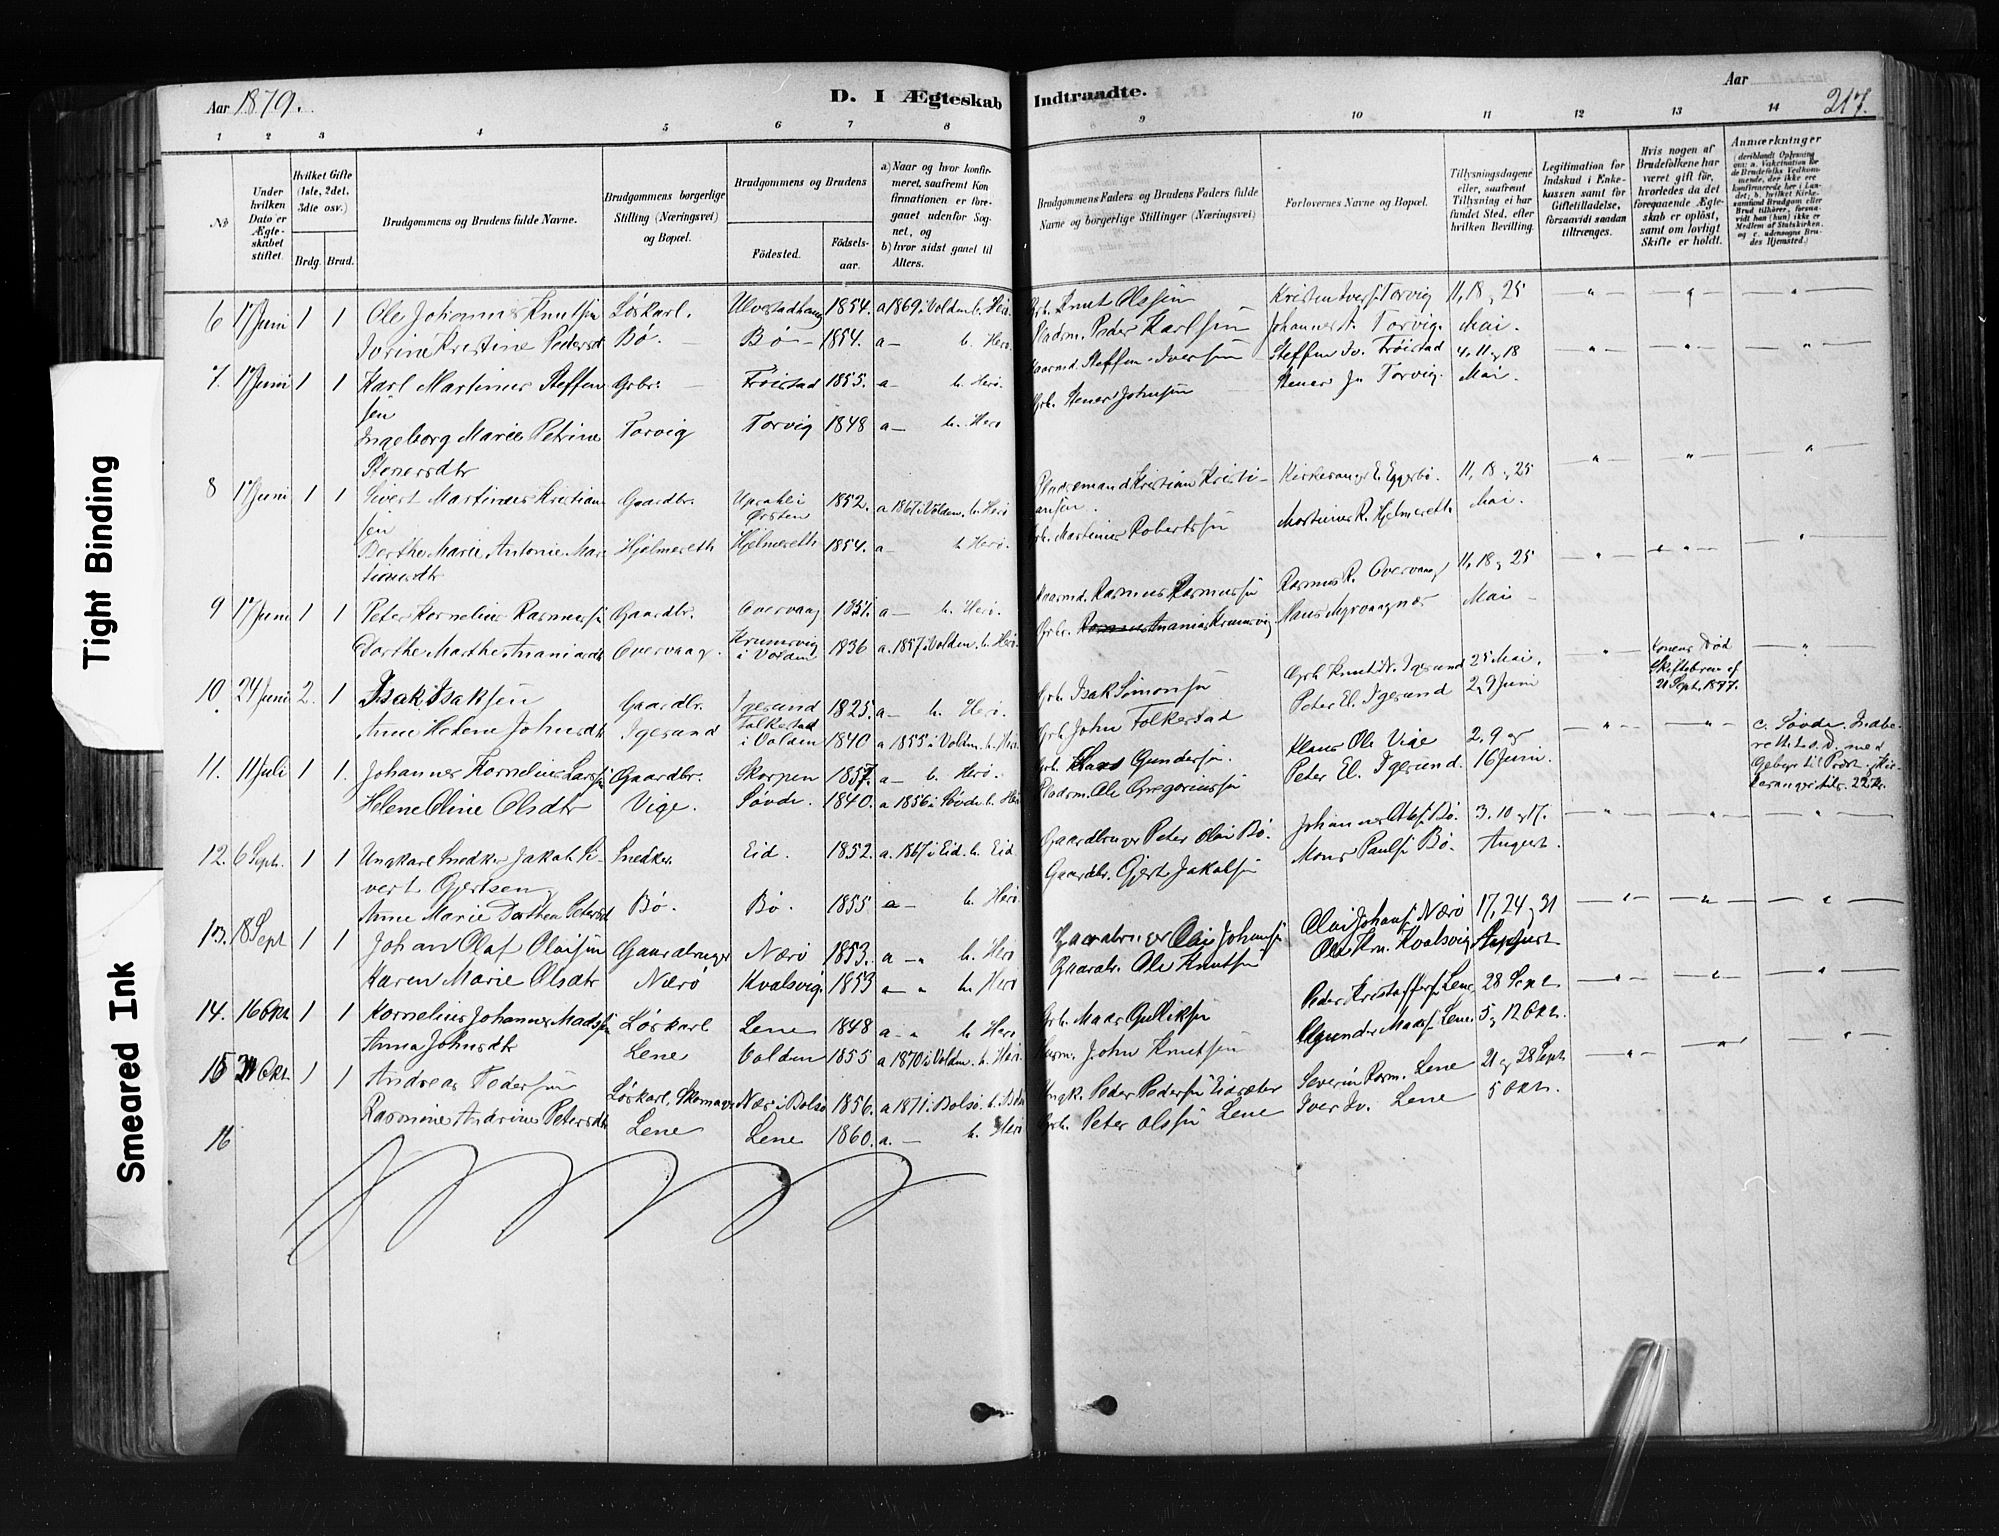 Aar 1879.
D. I Ægteskab Indtraadte.
Aar
217.
1 2 3 4 5 6 7 8 9 10 11 12 13 14
№
Under hvilken Dato er Ægteskabet stiftet.
Hvilket Gifte (1ste, 2det, 3die osv.)
Brdg. Brud.
Brudgommens og Brudens fulde Navne.
Brudgommens borgerlige Stilling (Næringsvei) og Bopæl.
Brudgommens og Brudens
Födested.
Födselsaar.
a) Naar og hvor konfirmeret, saafremt Konfirmationen er foregaaet udenfor Sognet, og
b) hvor sidst gaaet til Alters.
Brudgommens Faders og Brudens Faders fulde Navne og borgerlige Stillinger (Næringsvei)
Forlovernes Navne og Bopæl.
Tillysningsdagene eller, saafremt Tillysning ei har fundet Sted, efter hvilken Bevilling.
Legitimation for Indskud i Enkekassen samt for Giftetilladelse, forsaavidt saadan tiltrænges.
Hvis nogen af Brudefolkene har været gift før, hvorledes da det foregaaende Ægteskab er oplöst, samt om lovligt Skifte er holdt.
Anmærkninger
6 17 Juni 1 1 Ole Johannes Knutsen Löskarl. Ulvestadhaug 1854. a 1869 i Volden b. Herö. Grb. Knut Olssen Kristen Iversen Torvig 11, 18 og 25
Jorine Kristine Pedersd Bö. Bö 1854. a— b. Herö. Pladsm. Peder Karlsen Johannes A. Torvig. Mai.
7. 17 Juni 1 1 Karl Martinus Steffensen Grbr. Tröistad 1855. a— b. Herö. Kaarmd. Steffen Iversen Steffen Iv. Tröistad 4, 11 og 18
Ingeborg Marie Petrine Stenersdtr Torvig Torvig 1848 a— b. Herö Grb. Stener Johnsen Stener Jn Torvig. Mai.
8 17 Juni 1 1 Sivert Martinus Kristiansen Gaardbr. Örsten 1852. a 1867 i Volden. b. Herö Kristian Kristiansen. Kirkesanger E. Eggesbö. 11, 18 og 25
Berthe Marie Antonie Martinusdtr Hjelmeseth Hjelmeseth 1854. a— b. Herö. Grb. Martinus Robertssen Martinus R. Hjelmeseth Mai.
9 17 Juni 1 1 Peter Kornelius Rasmussen Gaardbr. Overvaag 1851. a— b. Herö. Kaarmd. Rasmus Rasmussen Rasmus R. Overvaag 11, 18 og 25
Dorthe Marthe Ananiasdtr Overvaag. Krumsvig i Volden 1836 a. 1857 i Volden. b. Herö. Grbr. Ananias Krumsvig Hans Myrvaagnæs Mai
10. 24 Juni 2. 1 Isak Isaksen Gaardbr. Igesund 1825. a— b. Herö. Grb. Isak Simonsen Grb. Knut N. Igesund 25 Mai, Konens Död Skiftebrev af 21 Sept. 1877.
Anne Helene Johnsdtr Igesund Folkestad i Volden 1840 a 1855 i Volden. b. Herö Grb. John Folkestad Peter El. Igesund 2, 9 Juni
11. 11 Juli 1 1. Johannes Kornelius Larsen Gaardbr. Skorpen 1857. a— b. Herö. Grb. Lars Gundersen. Klaus Ole Vige 2, 9 og
Helene Oline Olsdtr Vige. Søvde. 1840. a 1856 i Søvde. b. Herö Pladsm. Ole Gregoriussen Peter El. Igesund. 16 Juni.
c. Søvde. Indberettet s. D. med Gebyr til Præst og Kirkesanger
12. 6 Sept. 1 1 Ungkarl Snedker Jakob Sivert Gjertsen Snedker Eid. 1852. a. 1867 i Eid. b. Eid Gaardbruger Peter Olai Bö. Johannes Bö. 3, 10 og 17.
Anne Marie Dorthea Petersdt Bö. Bö. 1855 a— b. Herö Gaardbr. Gjert Jakobsen Mons Paulsen Bö. August.
13. 18 Sept 1 1 Johan Olaf Olaisen Gaardbruger Nærö 1853. a— b. Herö Gaardbruger Olai Johansen Olai Johansen Nærö 17, 24 og 31
Karen Marie Olsdtr Nærö Kvalsvig 1853 a— b. Herö Gaardbr. Ole Knutsen Ole Kn. Kvalsvig August
14. 16 Okt 1 1 Kornelius Johannes Madssen Löskarl Lene 1848 a— b. Herö Grb. Mads Gulliksen Peder Kristoffersen Lene 28 Sept
Anna Johnsdtr Lene Volden 1855 a 1870 i Volden. b. Herö. Husm. John Knutsen Madssen Lene 5 og 12 Okt.
15 21 Okt. 1 1 Andreas Pedersen Löskarl, Skomager Næs i Bolsö 1856. a 1871 i Bolsö. b. Bolsö Ungk. Peder Pedersen Eidsæter Severin Rasm. Lene 21 og 28 Sept
Rasmine Andrine Petersdtr Lene Lene 1860. a.— b. Herö Grb. Peter Olssen Lene Iver Iv. Lene 5 Okt.
16
Tight Binding
Smeared Ink